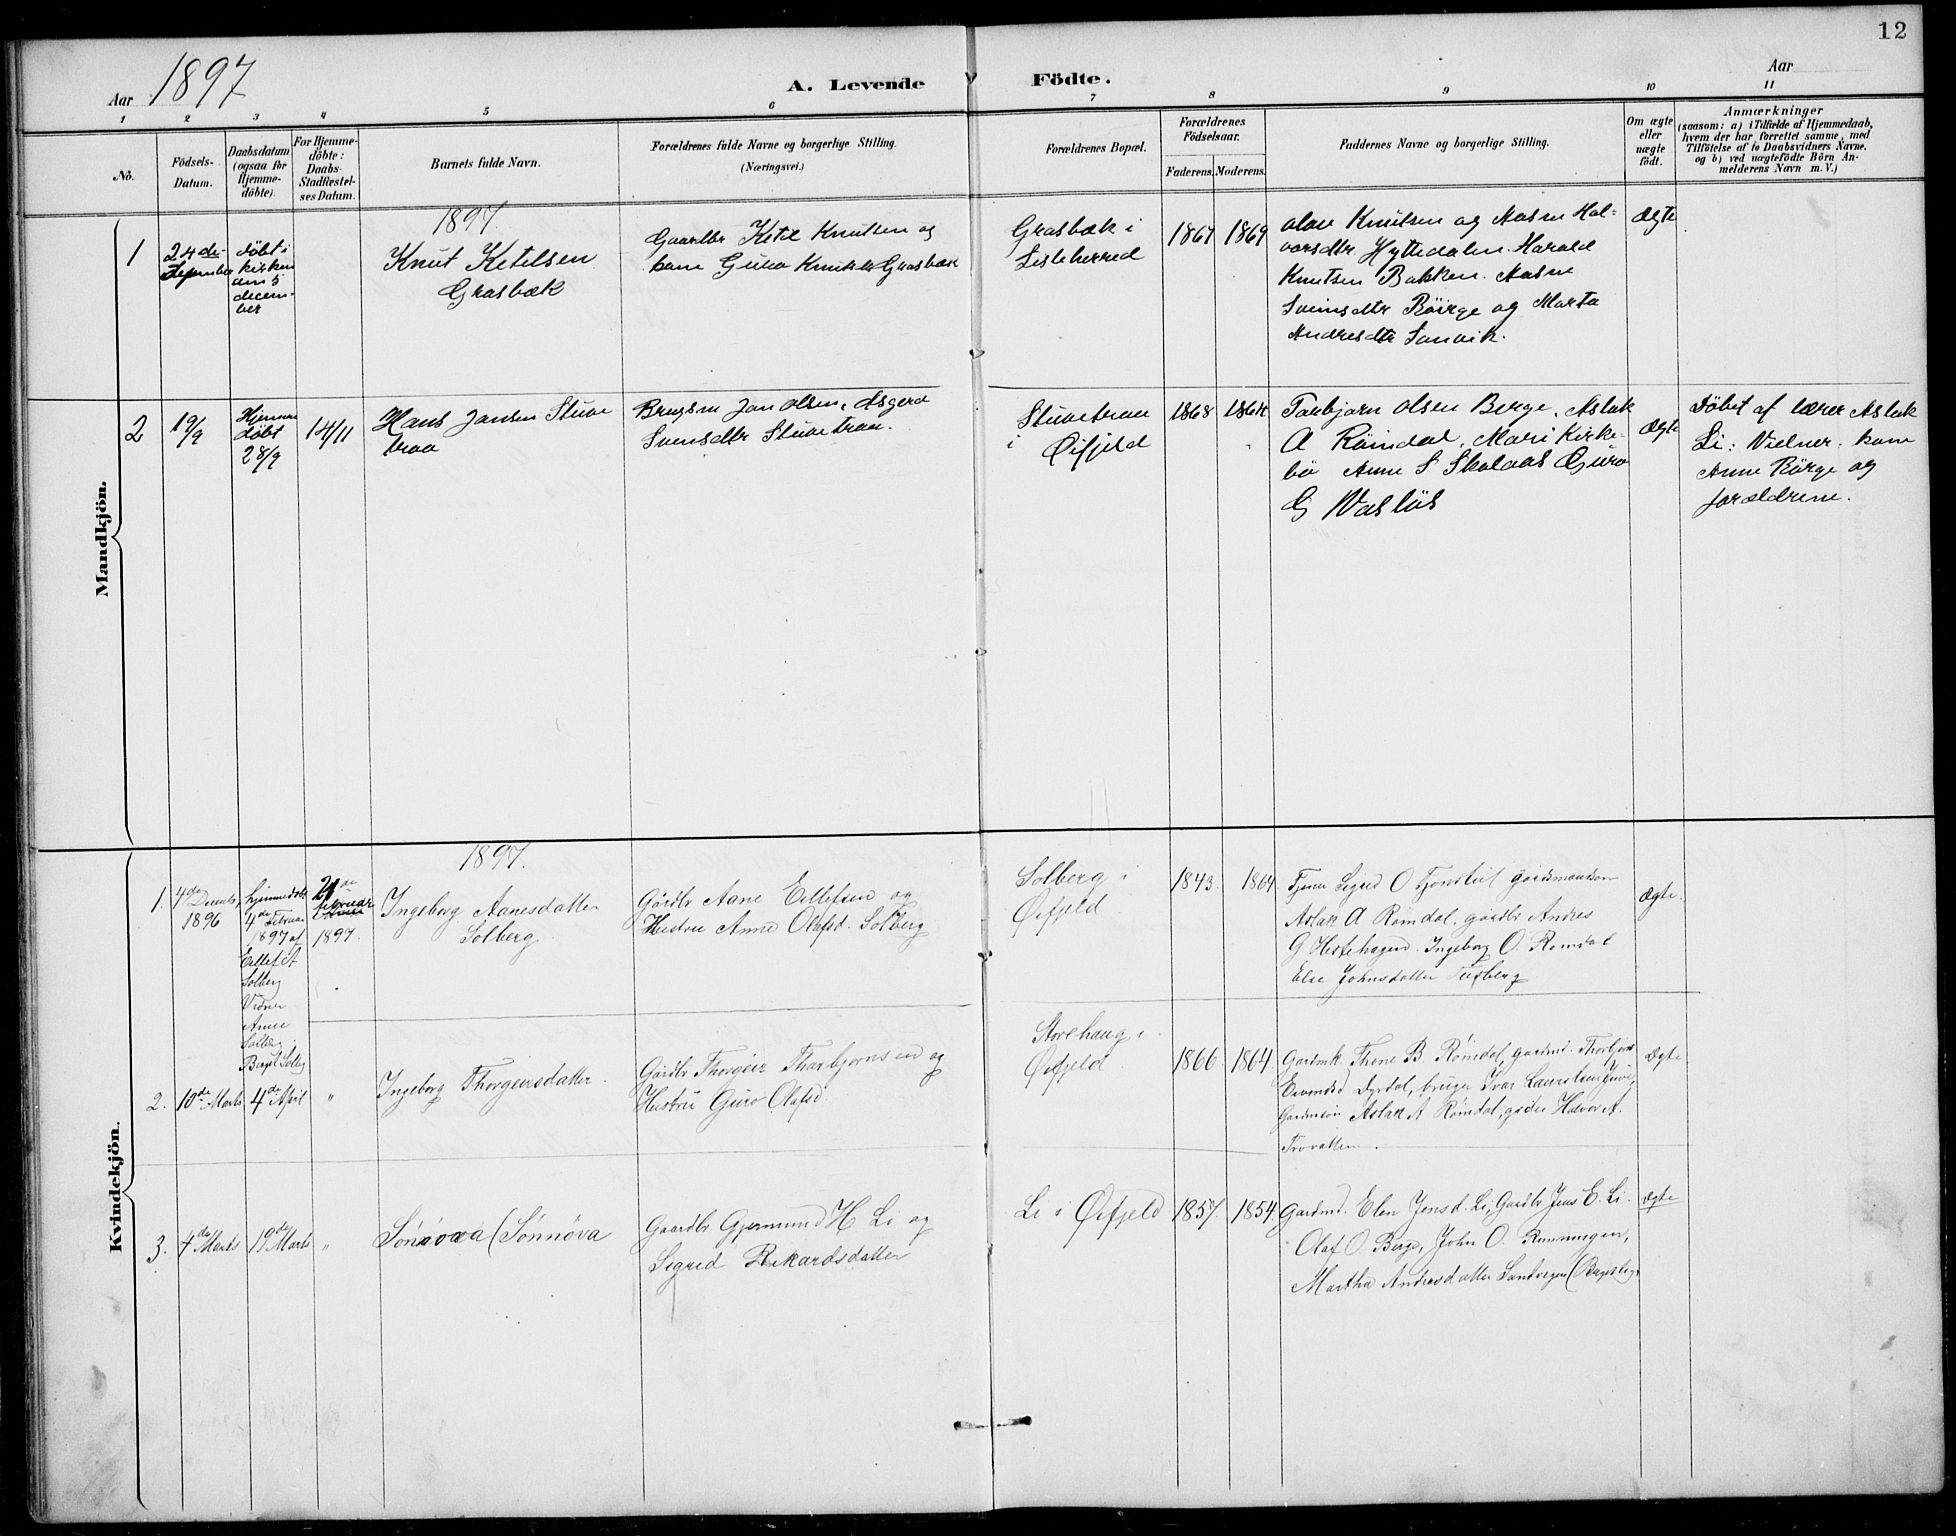 12
Aar 1897
A. Levende Födte.
Aar
1 2 3 4 5 6 7 8 9 10 11
No.
Födsels-
Datum.
Daabsdatum
(ogsaa for
Hjemme-
döbte).
For Hjemme-
döbte:
Daabs-
Stadfæstel-
ses Datum.
Barnets fulde Navn.
Forældrenes fulde Navne og borgerlige Stilling.
(Næringsvei.)
Forældrenes Bopæl.
Forældrenes
Födselsaar.
Faderens. Moderens.
Faddernes Navne og borgerlige Stilling.
Om ægte
eller
uægte
födt.
Anmærkninger
(saasom: a) i Tilfælde af Hjemmedaab,
hvem der har forrettet samme, med
Tilföielse af to Daabsvidners Navne.
og b) ved uægtefödte Börn An-
melderens Navn m. V.)
Mandkjön.
1897.
1
24de
September
döbt i
kirken
den 5
decem-
ber
Knut Ketilsen
Grasbæk
Gaardbr Ketil Knutsen og
kone Guro Knutsdtr Grasbæk
Grasbæk i
Lisleherred
1867 1869
Olav Knutsen og Aasne Hal-
vorsdtr Hyttedalen. Harald
Knutsen Bakken. Aasne
Sveinsdtr Röirge og Marta
Andresdtr Sanvik.
Ægte
2
19/9
Hjemme
döbt
28/9
14/11
Hans Jansen Stuve
traa
Brugsm Jan Olsen, Asgerd
Svensdtr Stuvetraa.
Stuvetraa
i Øifjeld
1868 1864
Torbjorn Olsen Berge, Aslak
A Römdal, Mari Kirke-
bö Anne S Skalaas Guro
G Vaslös
Ægte
Döbt af lærer Aslak
Li: Vidner: kone
Anne Rörge og
forældrene.
Kvindekjön.
1897.
1.
4de Decmb,
1896
hjemmedøbt
4de Februar
1897 af
Ellef A
Solberg
Vidner
Anne
Solberg
Bergit Solbg
21de
februar
1897.
Ingeborg Aanesdatter
Solberg
Gårdbr Aane Ellefsen og
Hustru Anne Olafsd. Solberg
Solberg i
Øifjeld
1843. 1864
Tjener Sigrid O Tjønstul gårdmandsøn
Aslak A Romdal, gårdbr Andres
G Hestehagen. Ingeborg O. Romdal
Else Johnsdatter Tufberg
Ægte.
2. 10de Marts 4de April "
Ingeborg Thorgeirsdatter.
Gårdbr Thorgeir Thorbjornsen og
Hustru Guro Olafsd.
Storehaug i
Øifjeld
1866 1864
Gardmk Thone B. Römdal, gardmd. Thorbjørn
Eivindsd Dyrdal, bruger Ivar Lauritsen Juve,
Gardmsön Aslak A Römdal, gårdbr Halvor A.
Trovatten.
Ægte
3. 4de Marts 19de Marts "
Sønnova (Sønnøva
Gaardbr Gjermund H Li og
Sigrid Rikardsdatter
Li i Øifjeld
1857. 1854
Gardmd. Elen Jensd. Li, Gardbr Jens E. Li.
Olaf O. Berge, John O. Runningen,
Martha Andresdatter Sandvigen (Bergsland)
Ægte